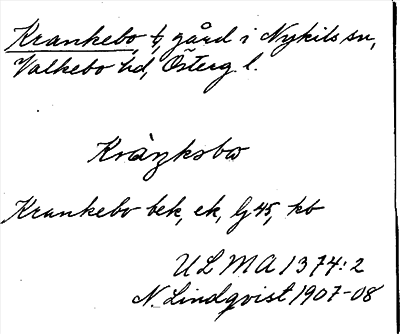 Krankebo, t, gård i Nykils sn,
Valkebo hd, Österg l.
Kràŋksbω
Krankebo bek, ek, lj 45, kb
ULMA 1374:2
N. Lindqvist 1907-08